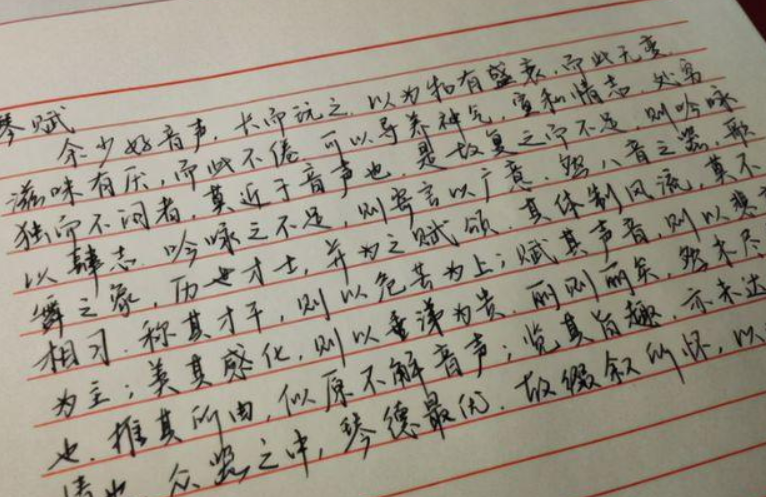 琴赋
余少好音声,长而玩之.以为物有盛衰,而此无变.
滋味有厌,而此不倦.可以导养神气,宣和情志.处穷
独而不闷者,莫近于音声也.是故复之而不足,则吟咏
以肆志.吟咏之不足,则寄言以广意.然八音之器,歌
舞之象,历世才士,并为之赋颂.其体制风流,莫不
相习.称其才干,则以危苦为上;赋其声音,则以悲
为主;美其感化,则以垂涕为贵.丽则丽矣,然未尽
也.推其所由,似原不解音声;览其旨趣,亦未达
情也.众器之中,琴德最优.故缀叙所怀,以